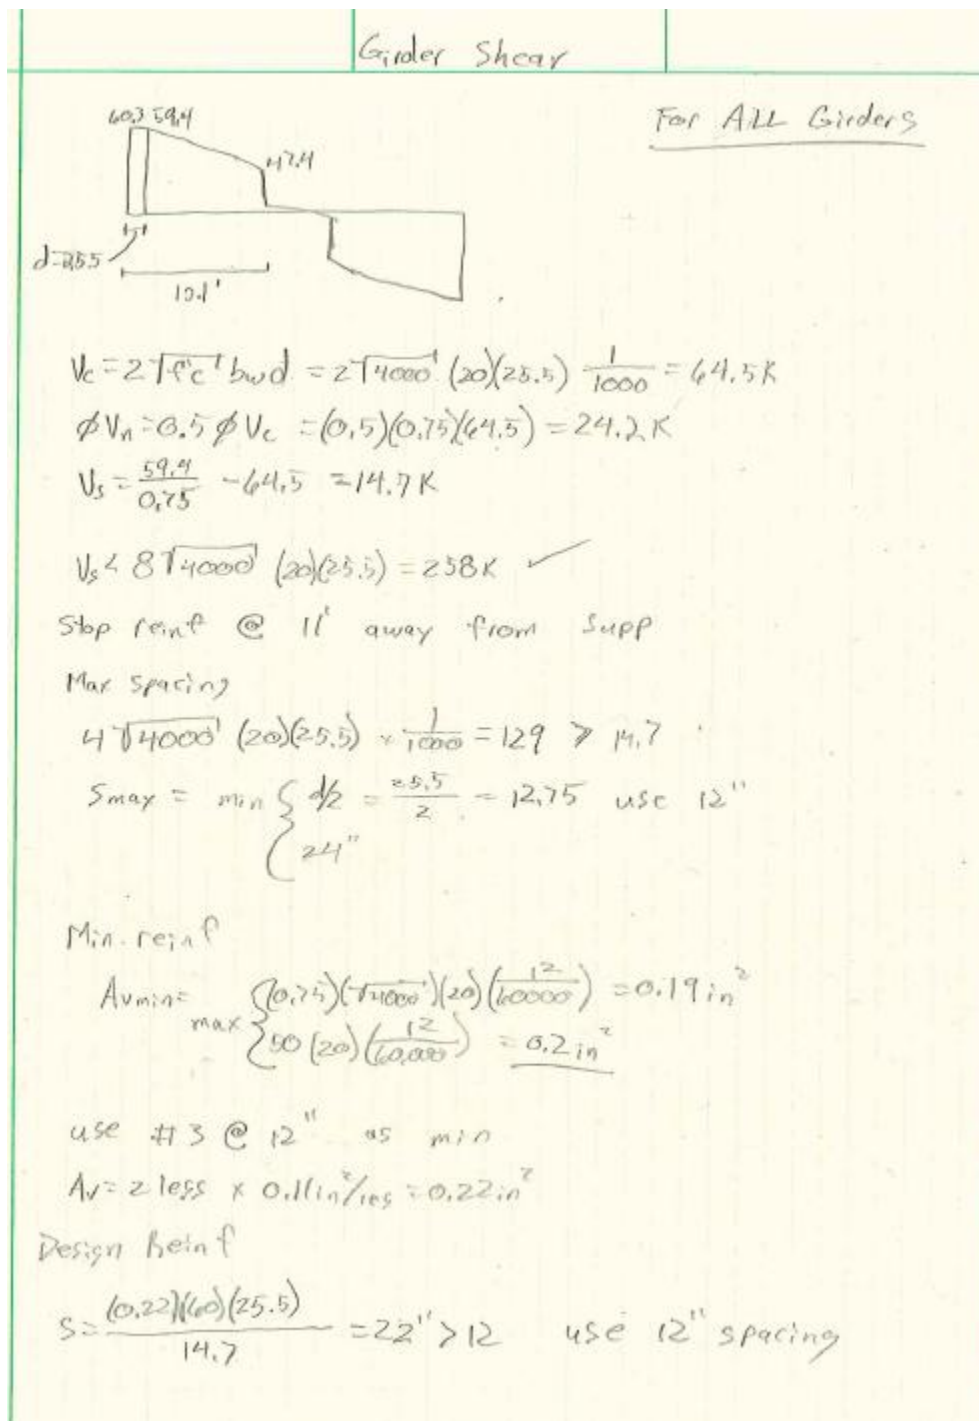 Girder Shear
For ALL Girders
60.3 59.4
47.4
d=2.55
10.1'
Vc = 2√f'c bwd = 2√4000 (20)(25.5) 1/1000 = 64.5K
φVn = 0.5φVc = (0.5)(0.75)(64.5) = 24.2K
Vs = 59.4/0.75 - 64.5 = 14.7K
Vs < 8√4000 (20)(25.5) = 258K ✓
Stop reinf @ 11' away from supp
Max spacing
4√4000 (20)(25.5) × 1/1000 = 129 > 14.7
Smax = min { d/2 = 25.5/2 = 12.75 use 12"
24"
Min. reinf
Avmin = max { (0.75)(√4000)(20)(12/60000) = 0.19in²
50(20)(12/60,000) = 0.2in²
use #3 @ 12" as min
Av = 2 legs × 0.11in²/leg = 0.22in²
Design Reinf
S = (0.22)(60)(25.5)/14.7 = 22" > 12 use 12" spacing